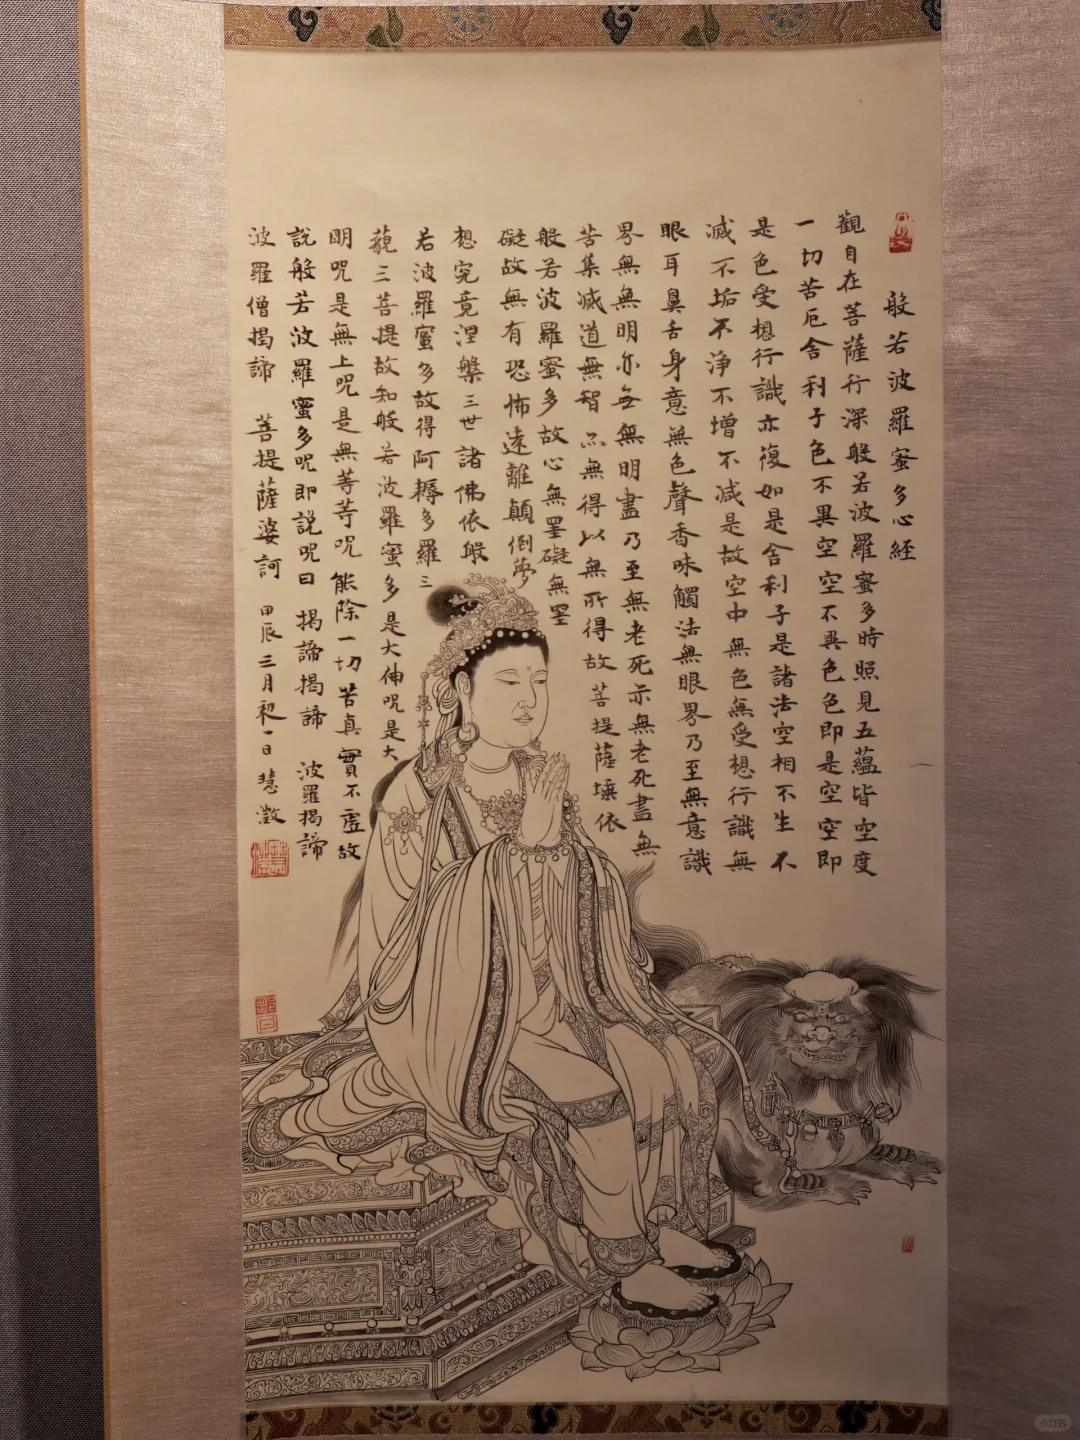 般若波羅蜜多心経
觀自在菩薩行深般若波羅蜜多時照見五蘊皆空度
一切苦厄舍利子色不異空空不異色色即是空空即
是色受想行識亦復如是舍利子是諸法空相不生不
滅不垢不淨不增不減是故空中無色無受想行識無
眼耳鼻舌身意無色聲香味觸法無眼界乃至無意識
界無無明亦無無明盡乃至無老死亦無老死盡無
苦集滅道無智亦無得以無所得故菩提薩埵依
般若波羅蜜多故心無罣礙無罣
礙故無有恐怖遠離顛倒夢
想究竟涅槃三世諸佛依般
若波羅蜜多故得阿耨多羅三
藐三菩提故知般若波羅蜜多是大神呪是大
明呪是無上呪是無等等呪能除一切苦真實不虛故
說般若波羅蜜多呪即說呪曰 揭諦揭諦 波羅揭諦
波羅僧揭諦 菩提薩婆訶 甲辰三月初一日慧澂
小红书